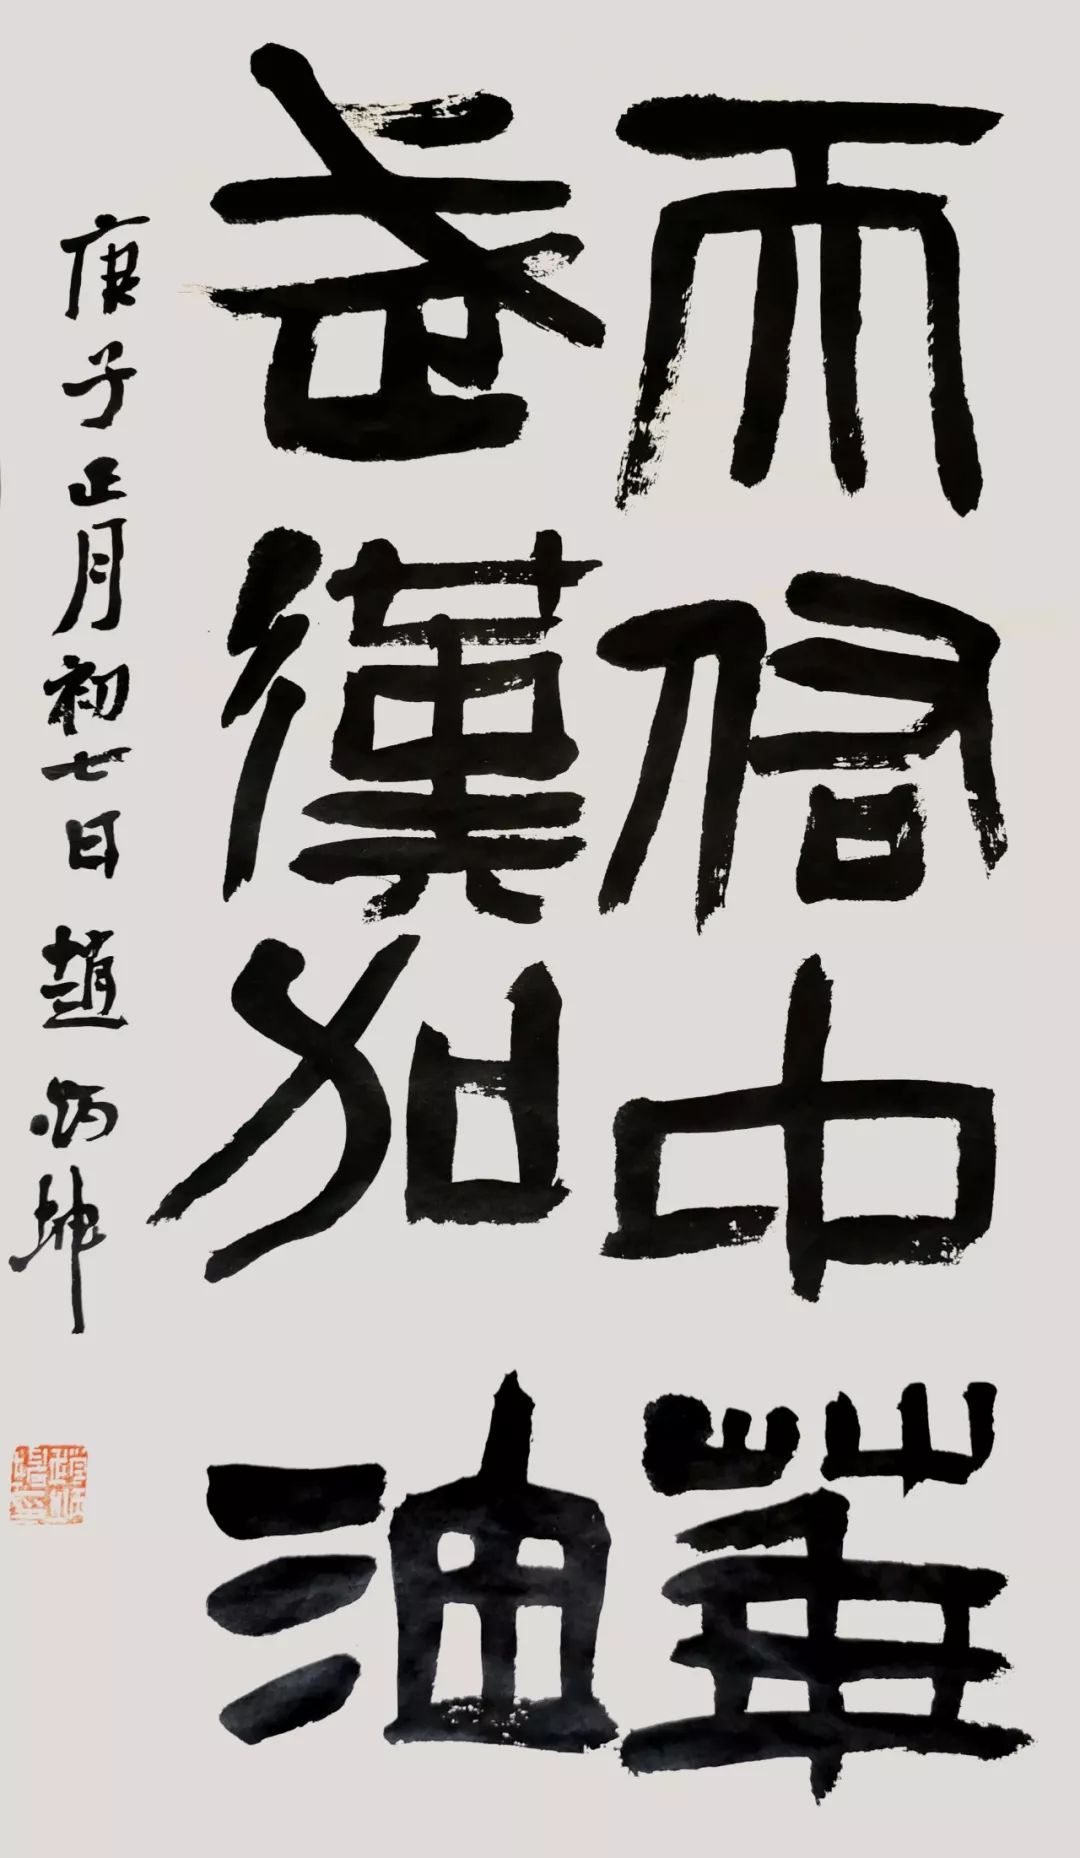 天佑中華
武漢加油
庚子正月初七日 趙炳坤